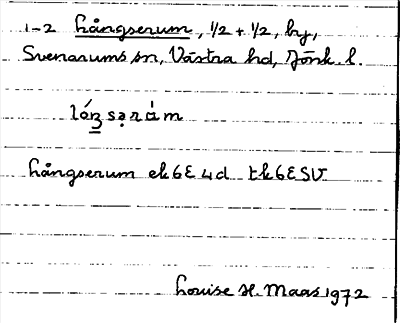 1-2 Långserum, 1/2 + 1/2, by,
Svenarums sn, Västra hd, Jönk. l.
Långserum ek 6E 4d tk 6E SV
Louise H. Maas 1972